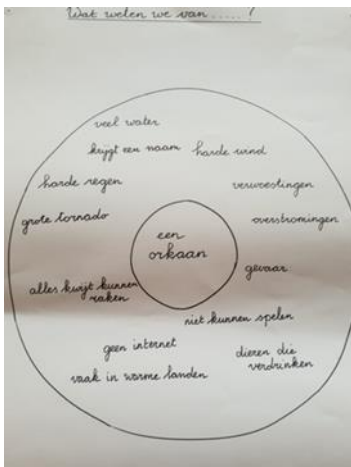 Wat weten we van ..... ?
veel water
krijgt een naam
harde wind
harde regen
verwoestingen
grote tornado
overstromingen
een
orkaan
gevaar
alles kwijt kunnen
raken
niet kunnen spelen
geen internet
dieren die
verdrinken
vaak in warme landen